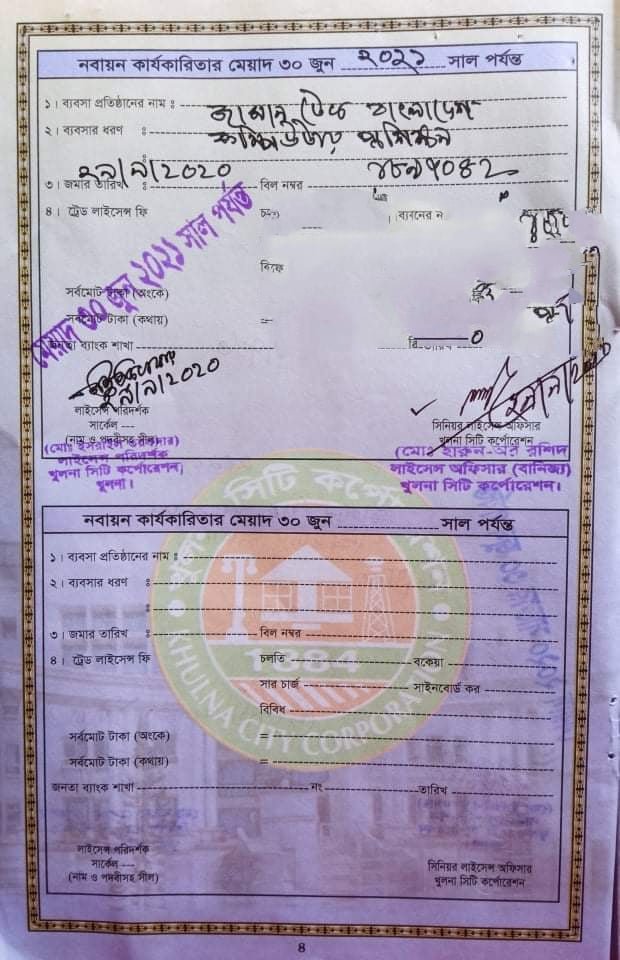 নবায়ন কার্যকারিতার মেয়াদ ৩০ জুন ২০২১ সাল পর্যন্ত
১। ব্যবসা প্রতিষ্ঠানের নাম ঃ জামান টেক বাংলাদেশ
২। ব্যবসার ধরণ ঃ কম্পিউটার প্রশিক্ষন
৩। জমার তারিখ ঃ বিল নম্বর
৪। ট্রেড লাইসেন্স ফি
মেয়াদ ৩০ জুন ২০২১ সাল পর্যন্ত
সর্বমোট টাকা (অংকে)
সর্বমোট টাকা (কথায়) =
জনতা ব্যাংক শাখা
লাইসেন্স পরিদর্শক
সার্কেল ---
(নাম ও পদবীসহ সীল)
লাইসেন্স পরিদর্শক
খুলনা সিটি কর্পোরেশন,
খুলনা।
সিনিয়র লাইসেন্স অফিসার
খুলনা সিটি কর্পোরেশন
(মোঃ হারুন-অর রশিদ
লাইসেন্স অফিসার (বানিজ্য)
খুলনা সিটি কর্পোরেশন।
নবায়ন কার্যকারিতার মেয়াদ ৩০ জুন সাল পর্যন্ত
১। ব্যবসা প্রতিষ্ঠানের নাম ঃ
২। ব্যবসার ধরণ ঃ
ঃ
৩। জমার তারিখ ঃ বিল নম্বর
৪। ট্রেড লাইসেন্স ফি চলতি বকেয়া
সার চার্জ সাইনবোর্ড কর
বিবিধ
সর্বমোট টাকা (অংকে) =
সর্বমোট টাকা (কথায়) =
জনতা ব্যাংক শাখা নং তারিখ
লাইসেন্স পরিদর্শক
সার্কেল ---
(নাম ও পদবীসহ সীল)
সিনিয়র লাইসেন্স অফিসার
খুলনা সিটি কর্পোরেশন
খুলনা সিটি কর্পোরেশন
1284
KHULNA CITY CORPORATION
৪